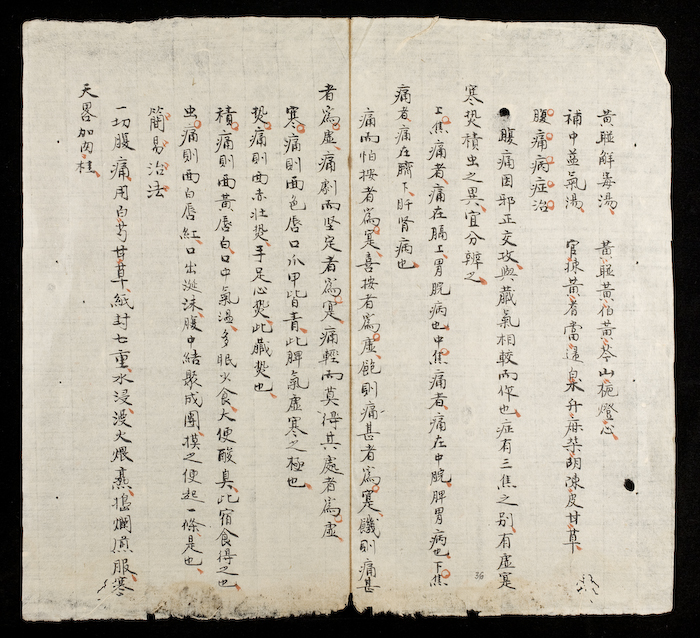 黃聯解毒湯、 黃聯黃伯黃芩山梔燈心
補中益氣湯、 官揀黃耆當退泉升毋柴胡陳皮甘草、
腹痛病症治
腹痛因邪正交攻與臟氣相較而作也症有三焦之別有虛寔
寒熒積虫之異宜分辨之
上焦痛者痛在膈上胃脘病也中焦痛者痛在中脘脾胃病也下焦
痛者痛在臍下肝腎病也
痛而怕按者為寔喜按者為虛飽則痛甚者為寔饑則痛甚
者為虛痛劇而坚定者為寔痛輕而莫淂其處者為虛
寒痛則面色唇口爪甲皆青此脾氣虛寒之極也
熒痛則面赤壮熒手足心熒此臟熒也
積痛則面黃唇白口中氣溫多眠少食大便酸臭此宿食得之也
虫痛則面白唇紅口出涎沫腹中結聚成團摸之便起一條是也
簡易治法
一切腹痛用白芍甘草紙封七重水浸漫火煨熟搗爛煎服寒
天畧加肉桂
36